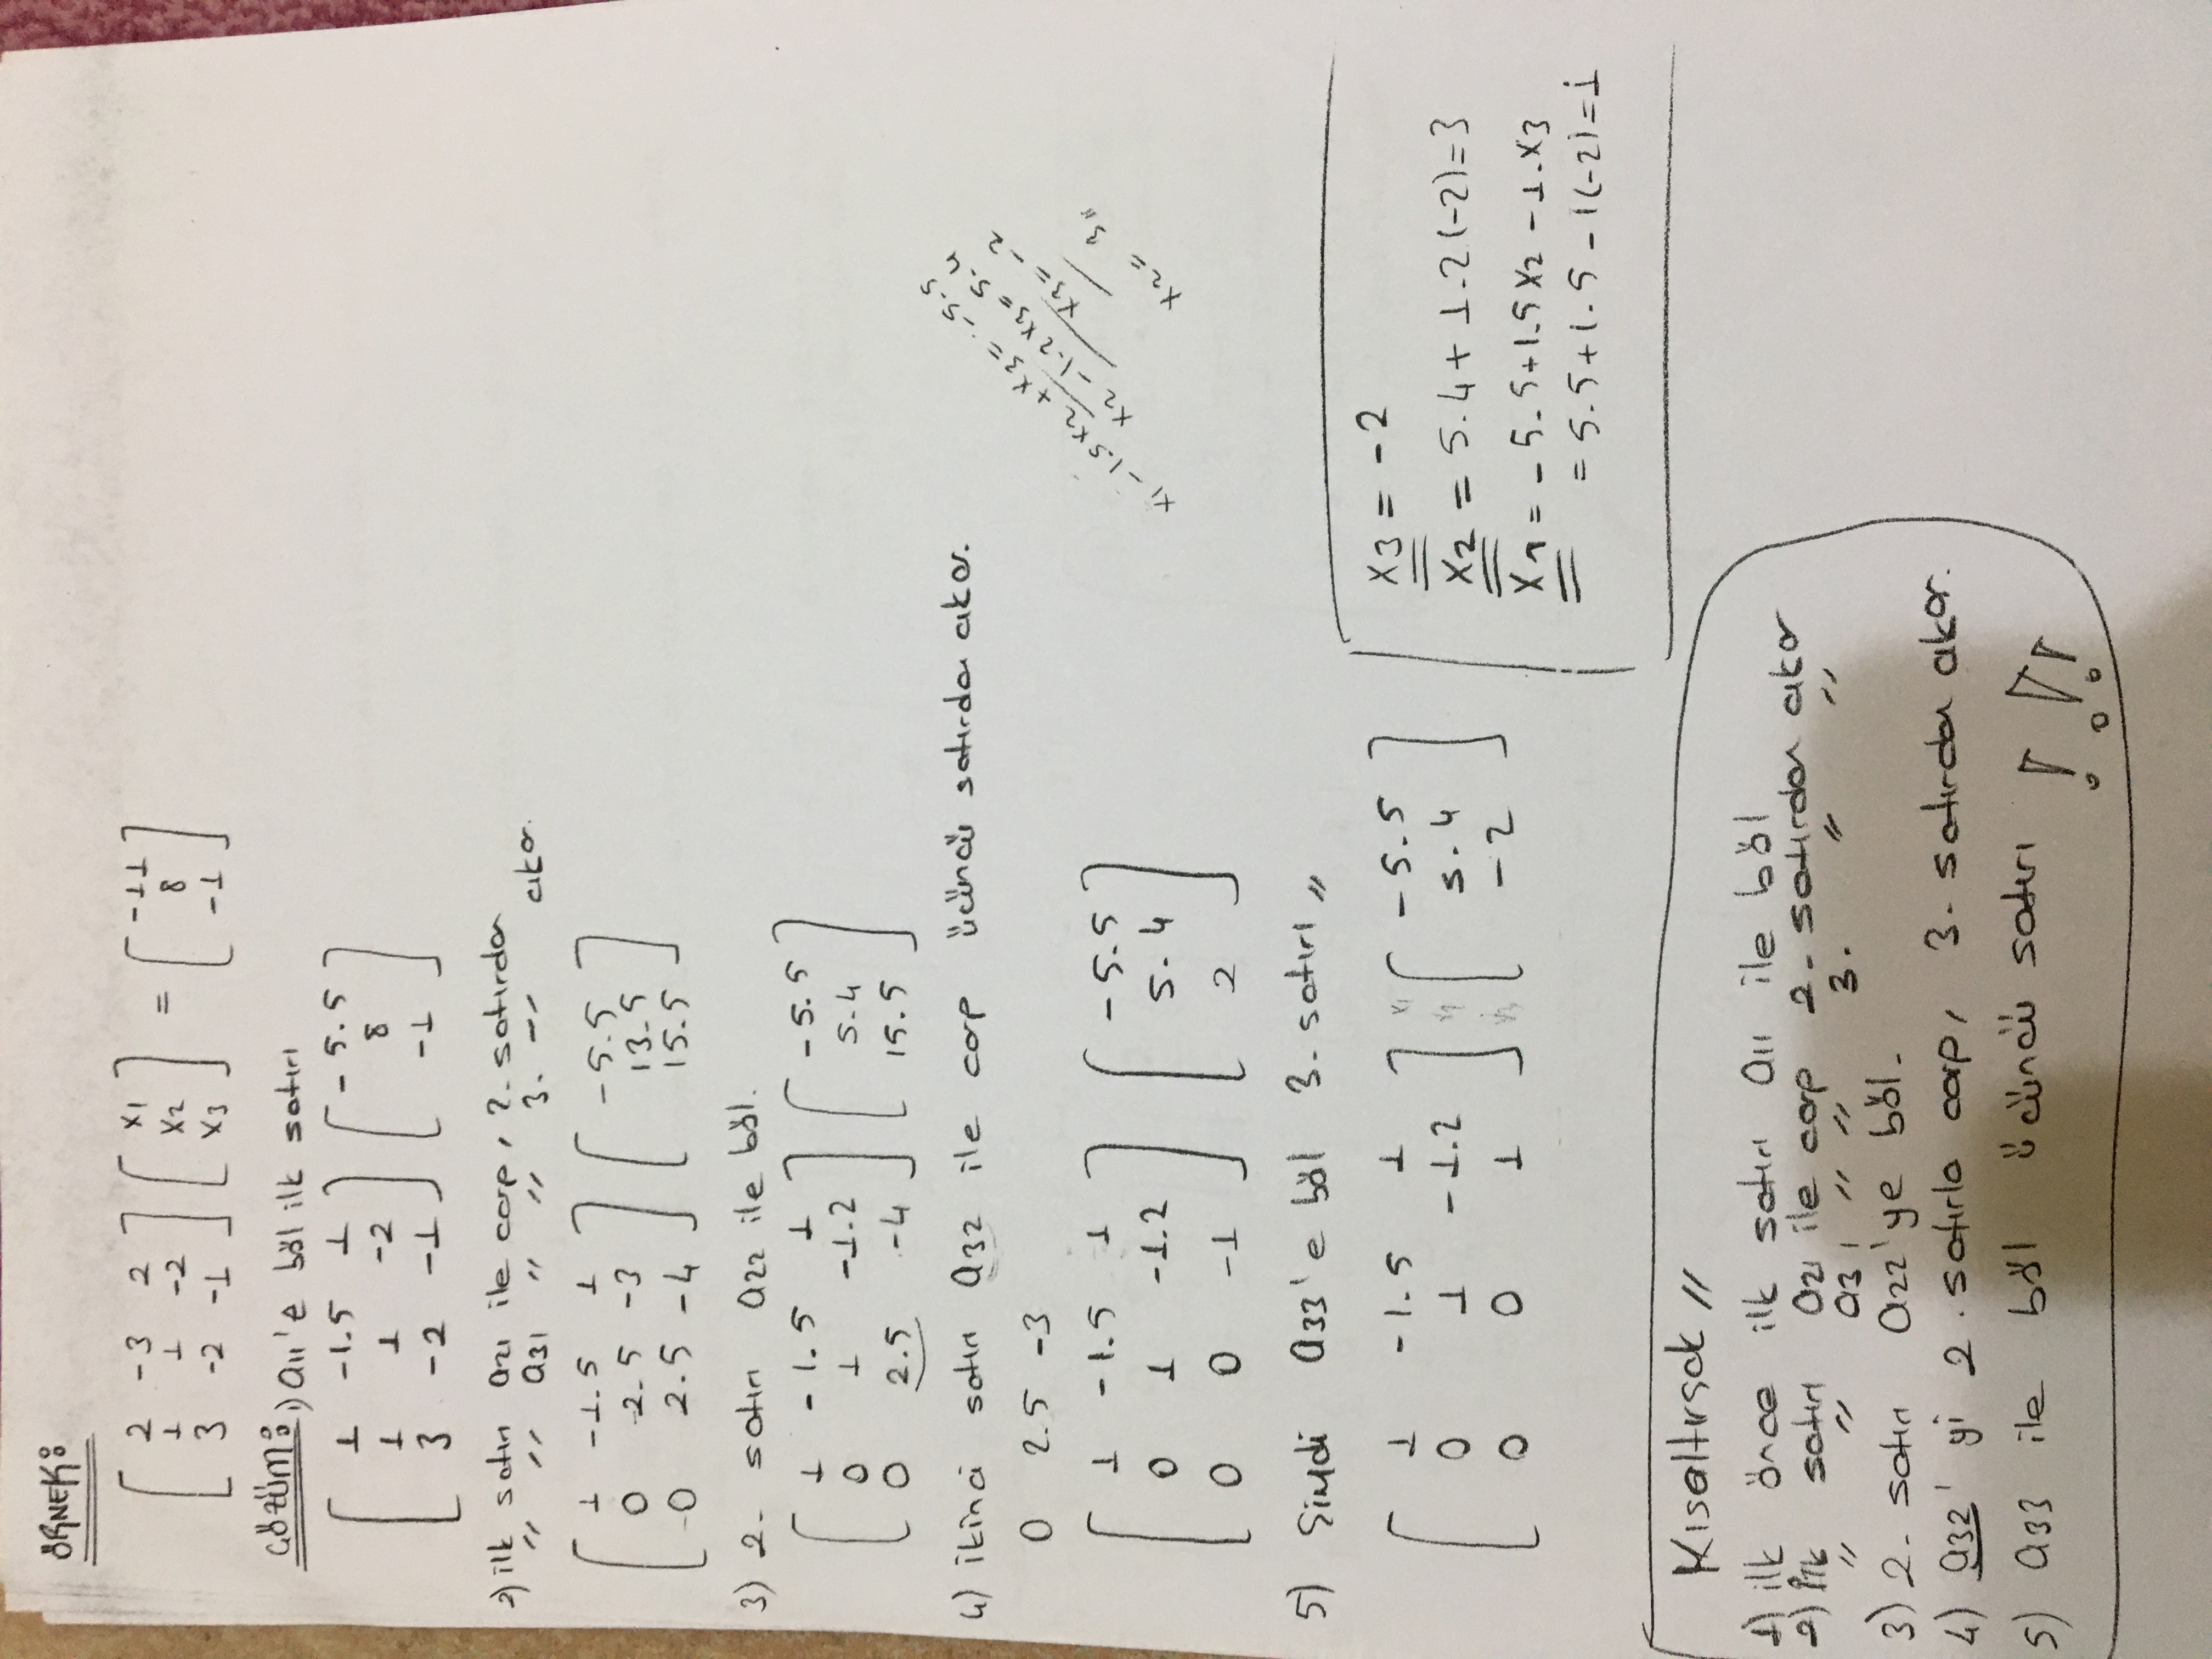 ÖRNEK:
[ 2 -3 2 ] [ x1 ] = [ -11 ]
[ 1 1 -2 ] [ x2 ] [ 8 ]
[ 3 -2 -1 ] [ x3 ] [ -1 ]
ÇÖZÜM: 1) a11'e böl ilk satırı
[ 1 -1.5 1 ] [ -5.5 ]
[ 1 1 -2 ] [ 8 ]
[ 3 -2 -1 ] [ -1 ]
2) ilk satırı a21 ile carp, 2. satırdan
" " a31 " " 3. " cıkar.
[ 1 -1.5 1 ] [ -5.5 ]
[ 0 2.5 -3 ] [ 13.5 ]
[ 0 2.5 -4 ] [ 15.5 ]
3) 2. satırı a22 ile böl.
[ 1 -1.5 1 ] [ -5.5 ]
[ 0 1 -1.2 ] [ 5.4 ]
[ 0 2.5 -4 ] [ 15.5 ]
4) ikinci satırı a32 ile carp ücüncü satırdan cıkar.
0 2.5 -3
[ 1 -1.5 1 ] [ -5.5 ]
[ 0 1 -1.2 ] [ 5.4 ]
[ 0 0 -1 ] [ 2 ]
x1 - 1.5x2 + x3 = -5.5
x2 - 1.2x3 = 5.4
x3 = -2
x2 = 3 "
5) Şimdi a33'e böl 3. satırı "
[ 1 -1.5 1 ] x1 [ -5.5 ]
[ 0 1 -1.2 ] x2 [ 5.4 ]
[ 0 0 1 ] x3 [ -2 ]
x3 = -2
x2 = 5.4 + 1.2(-2) = 3
x1 = -5.5 + 1.5x2 - 1.x3
= 5.5 + 1.5 - 1(-2) = 1
Kısaltırsak "
1) ilk önce ilk satırı a11 ile böl
2) ilk satırı a21 ile carp 2. satırdan cıkar
" " a31 " " 3. " "
3) 2. satırı a22'ye böl.
4) a32'yi 2. satırla carp, 3. satırdan cıkar.
5) a33 ile böl ücüncü satırı !!!